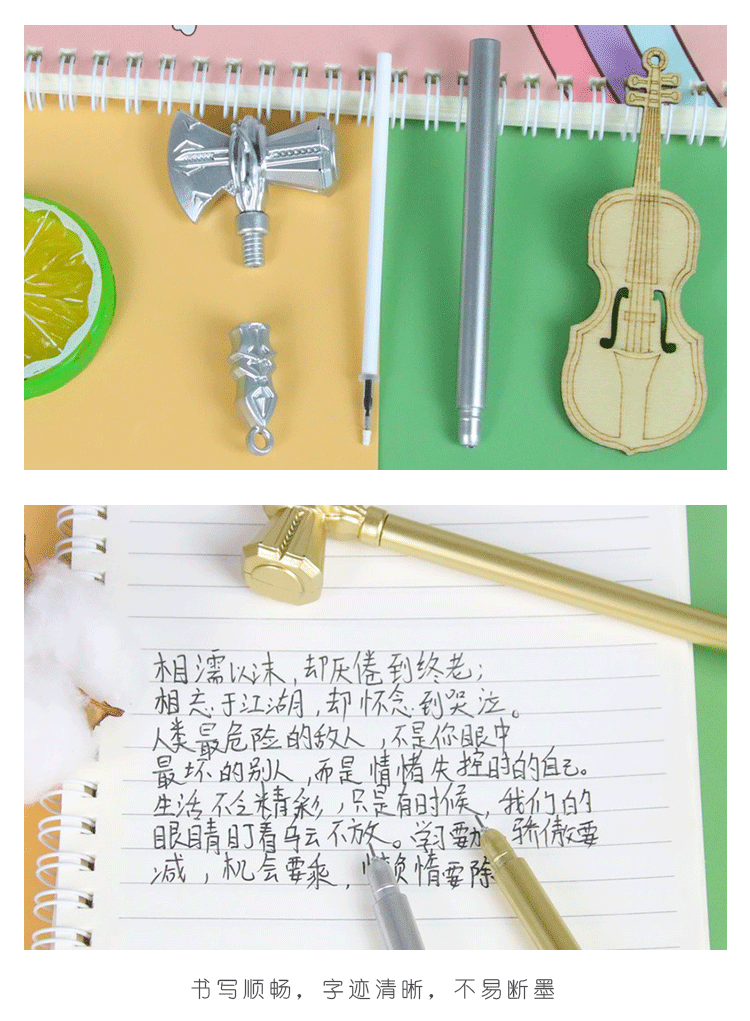 相濡以沫,却厌倦到终老;
相忘于江湖,却怀念到哭泣。
人类最危险的敌人,不是你眼中
最坏的别人,而是情绪失控时的自己。
生活不乏精彩,只是有时候,我们的
眼睛盯着乌云不放。学习要加 骄傲要
减,机会要乘,懒惰要除
书写顺畅，字迹清晰，不易断墨